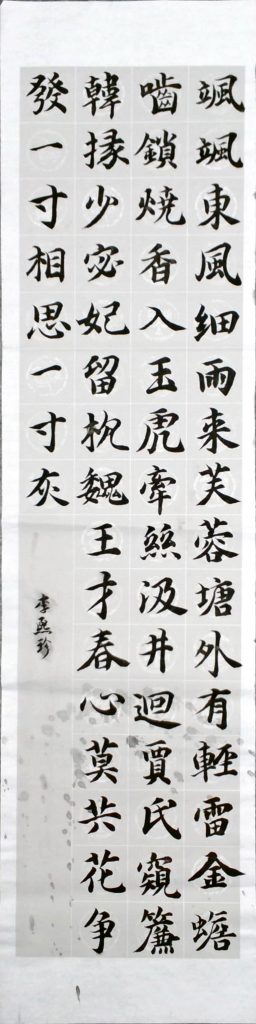 颯颯東風細雨来芙蓉塘外有輕雷金蟾
嚙鎖燒香入玉虎牽絲汲井迴賈氏窺簾
韓掾少宓妃留枕魏王才春心莫共花争
發一寸相思一寸灰
李熙珍